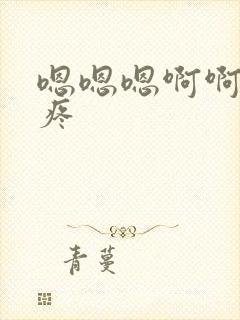 嗯嗯嗯啊啊
疼
青蔓